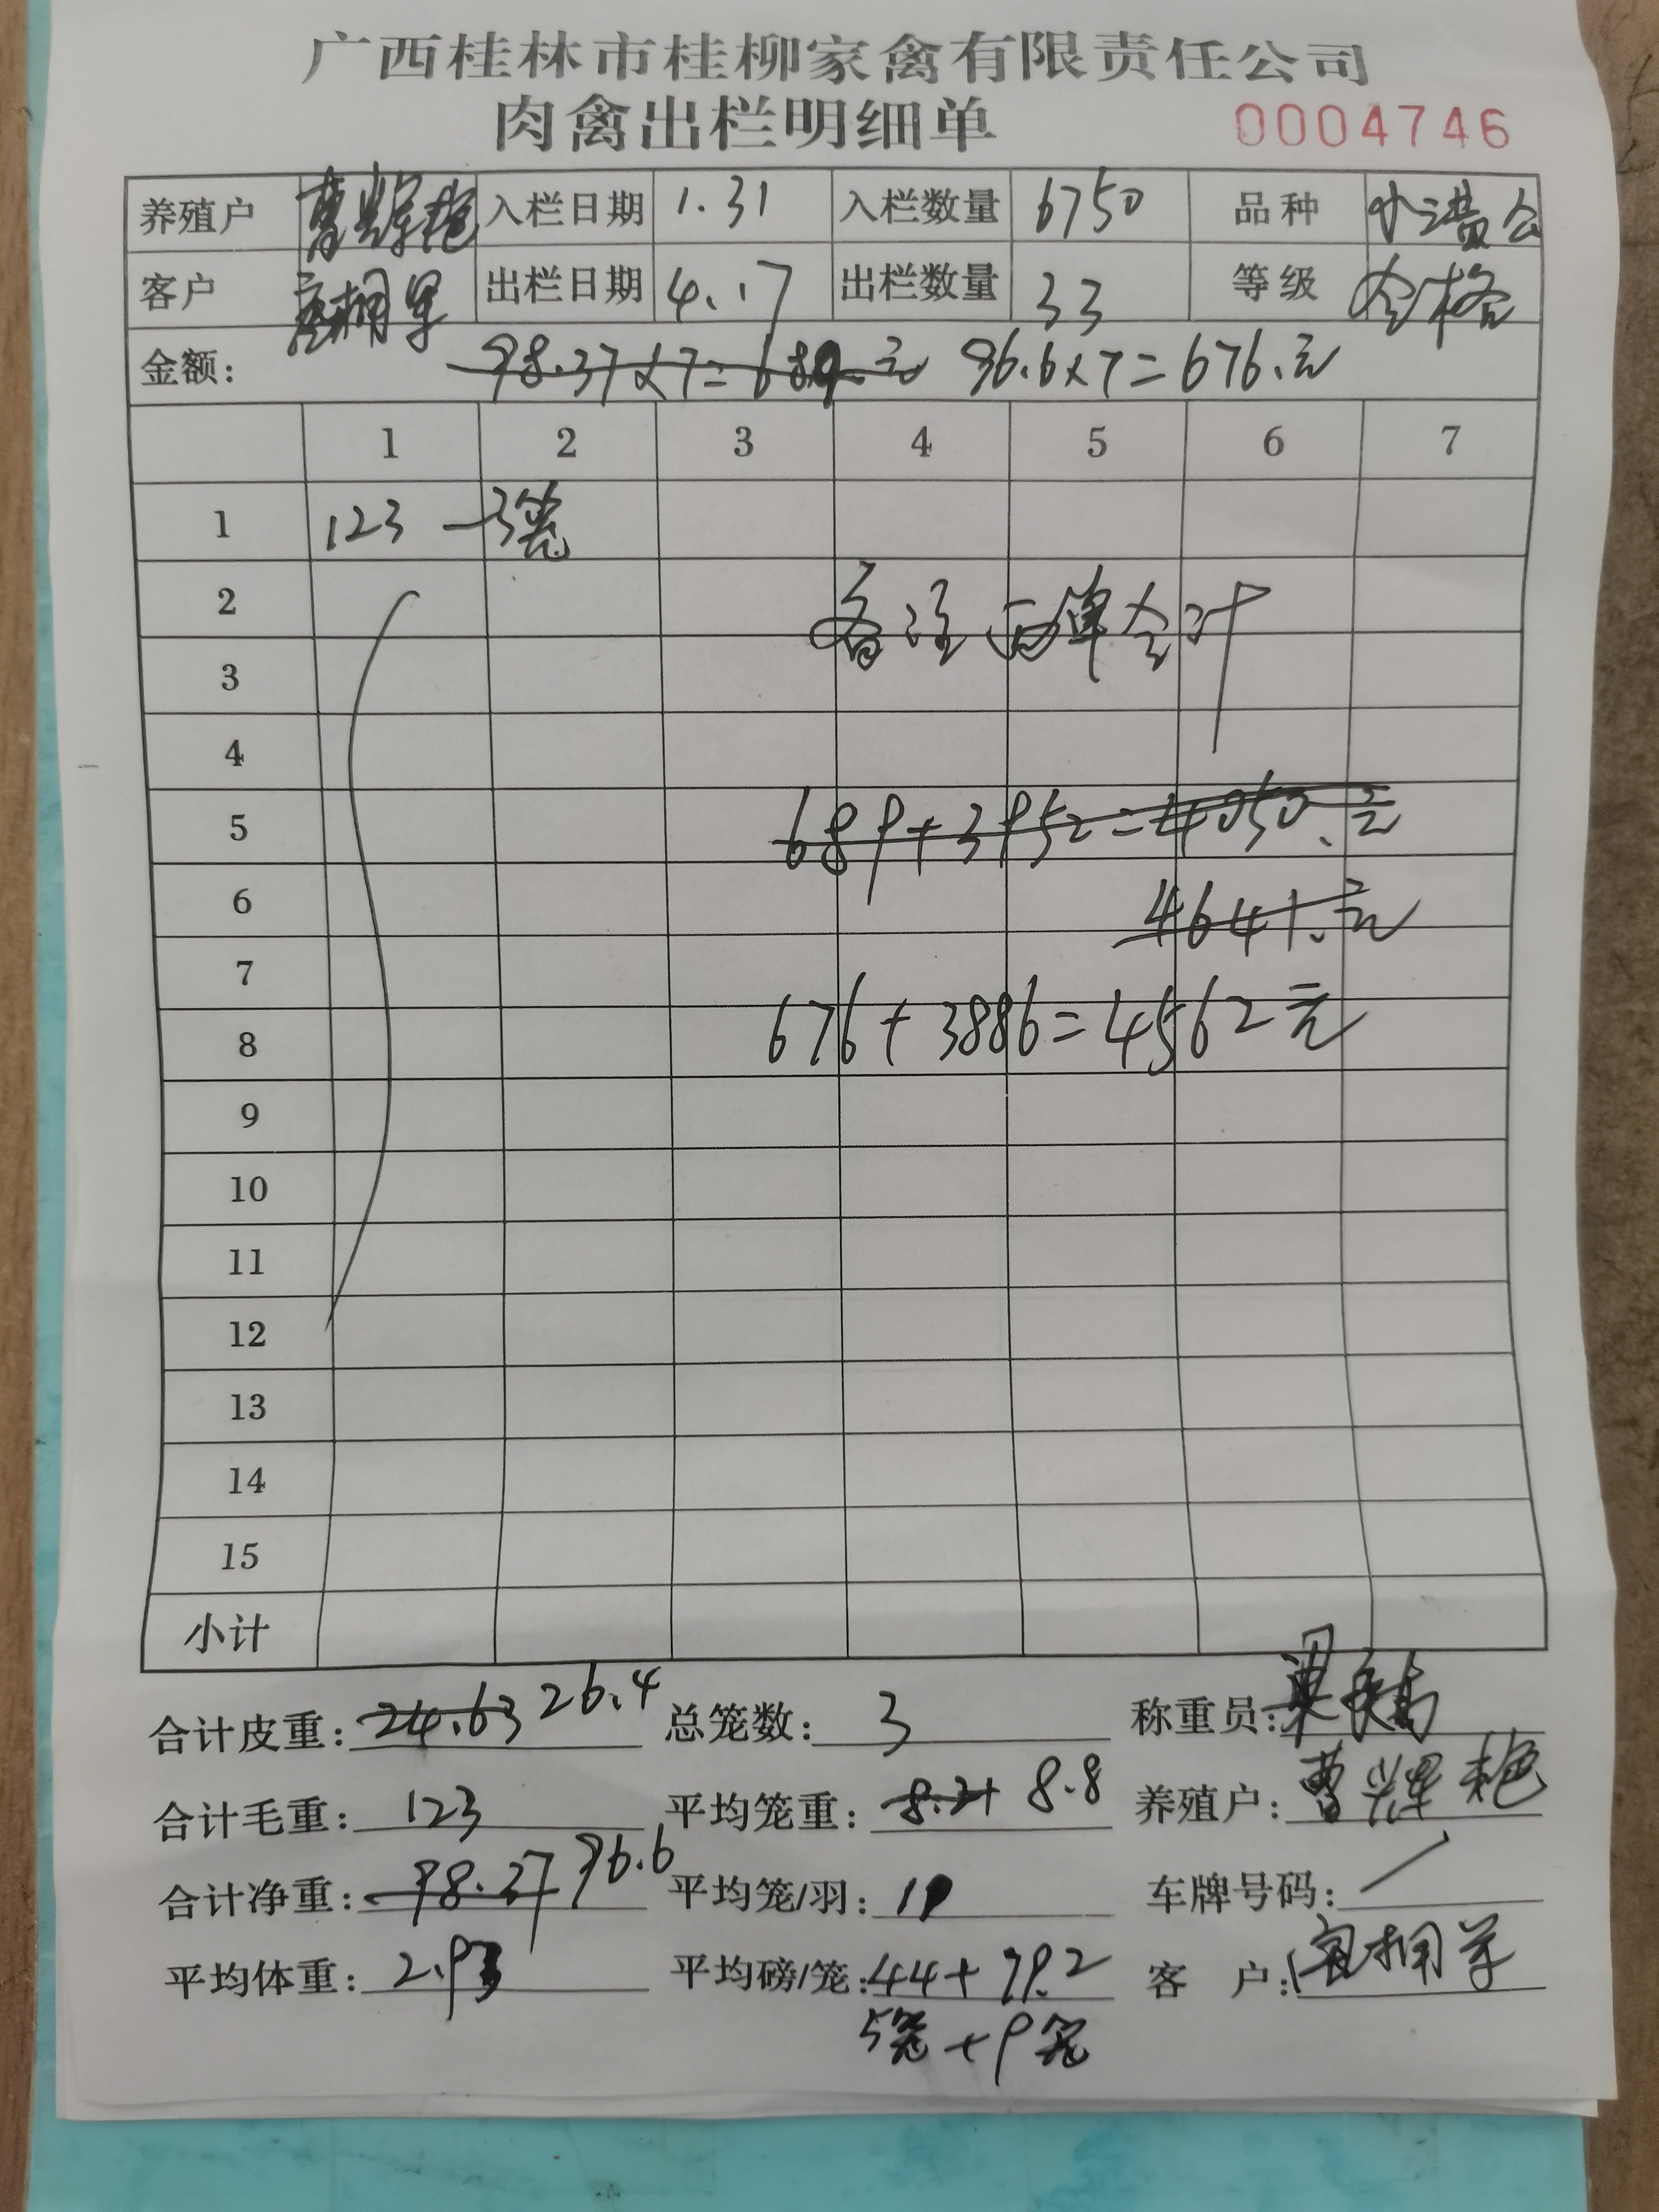 广西桂林市桂柳家禽有限责任公司
肉禽出栏明细单 0004746
养殖户 曹辉艳 入栏日期 1.31 入栏数量 6750 品种
客户 出栏日期 4.17 出栏数量 33 等级 合格
金额: 98.37×7=689.元 96.6×7=676.元
1 2 3 4 5 6 7
1 123 — 3笼
2 备注 两单合计
3
4
5 689+3952=4050.元
6 4641.元
7
8 676+3886=4562元
9
10
11
12
13
14
15
小计
合计皮重: 24.63 26.4 总笼数: 3 称重员:
合计毛重: 123 平均笼重: 8.21 8.8 养殖户: 曹辉艳
合计净重: 98.37 96.6 平均笼/羽: 11 车牌号码: /
平均体重: 2.93 平均磅/笼: 44+79.2 客户:
5笼+9笼